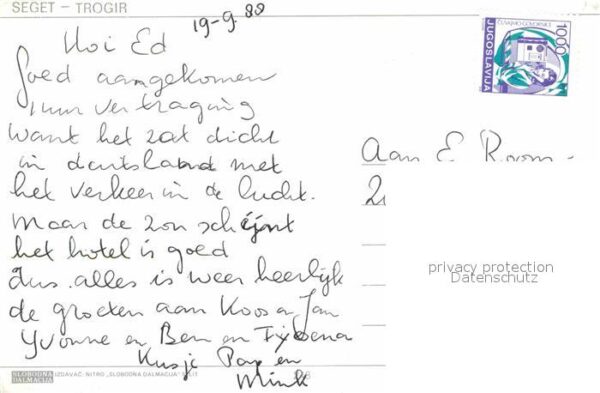 SEGET – TROGIR
19-9.88
Hoi Ed
Goed aangekomen
1 uur vertraging
want het zat dicht
in duitsland met
het verkeer in de lucht.
Maar de zon schijnt
het hotel is goed
dus alles is weer heerlijk
de groeten aan Koos en Jan
Yvonne en Ben en
Kusje Pap en
Mink
ČUVAJMO GOLOBRNICE
1000
JUGOSLAVIJA
Aan E. Room
privacy protection
Datenschutz
SLOBODNA DALMACIJA
IZDAVAČ: NITRO „SLOBODNA DALMACIJA" SPLIT